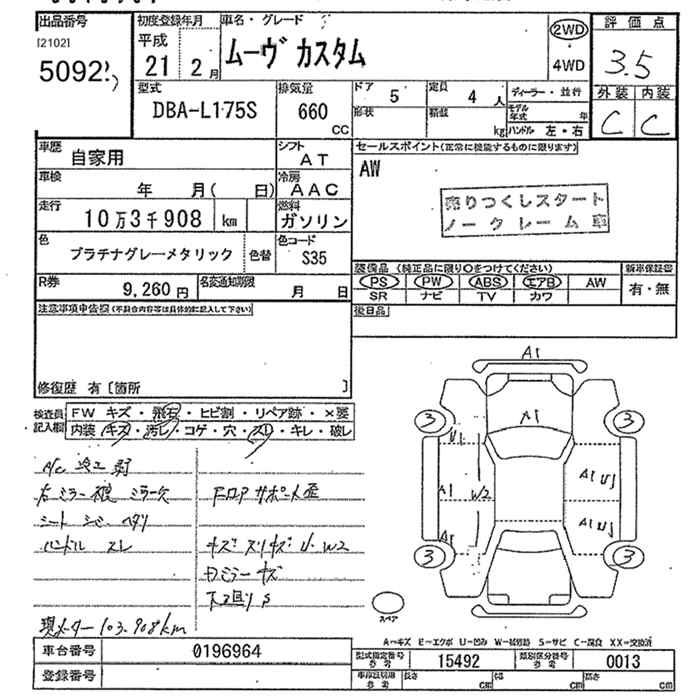 出品番号
[2102]
5092
初度登録年月
平成
21 2月
車名・グレード
ムーヴ カスタム
2WD
4WD
評価点
3.5
型式
DBA-L175S
排気量
660
CC
ドア
5
定員
4 人
形状
積載
kg
ディーラー・並行
モデル年式 年
ハンドル 左・右
外装 内装
C C
車歴
自家用
シフト
AT
セールスポイント(正常に機能するものに限ります)
AW
売りつくしスタート
ノークレーム車
車検
年 月( 日)
冷房
AAC
走行
10万3千908 km
燃料
ガソリン
色
プラチナグレーメタリック
色替
色コード
S35
R券
9,260円
名変通知期限
月 日
装備品(純正品に限り○をつけてください)
PS PW ABS エアB AW
SR ナビ TV カワ
新車保証書
有・無
注意事項申告欄(不具合内容等は具体的に記入して下さい)
後日品
修復歴 有〔箇所 〕
検査員記入欄
FW キズ・飛石・ヒビ割・リペア跡・×要
内装 キズ・汚レ・コゲ・穴・スレ・キレ・破レ
右ミラー
ミラー欠
シート
ハンドル スレ
キズ スリキズ U. W2
下回りS
現メーター103.908km
A1
A1
3
3
U1
A1
W2
A1 U1
A1
A1 U1
3
3
スペア
A=キズ E=エクボ U=凹み W=補修跡 S=サビ C=腐食 XX=交換済
車台番号
0196964
登録番号
型式指定番号
参考
15492
類別区分番号
参考
0013
車庫証明用
参考
長さ cm
幅 cm
高さ cm